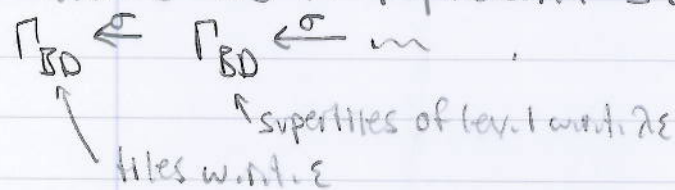 Γ_BD ←σ Γ_BD ←σ ... .
supertiles of lev. 1 w.r.t. λε
tiles w.r.t. ε